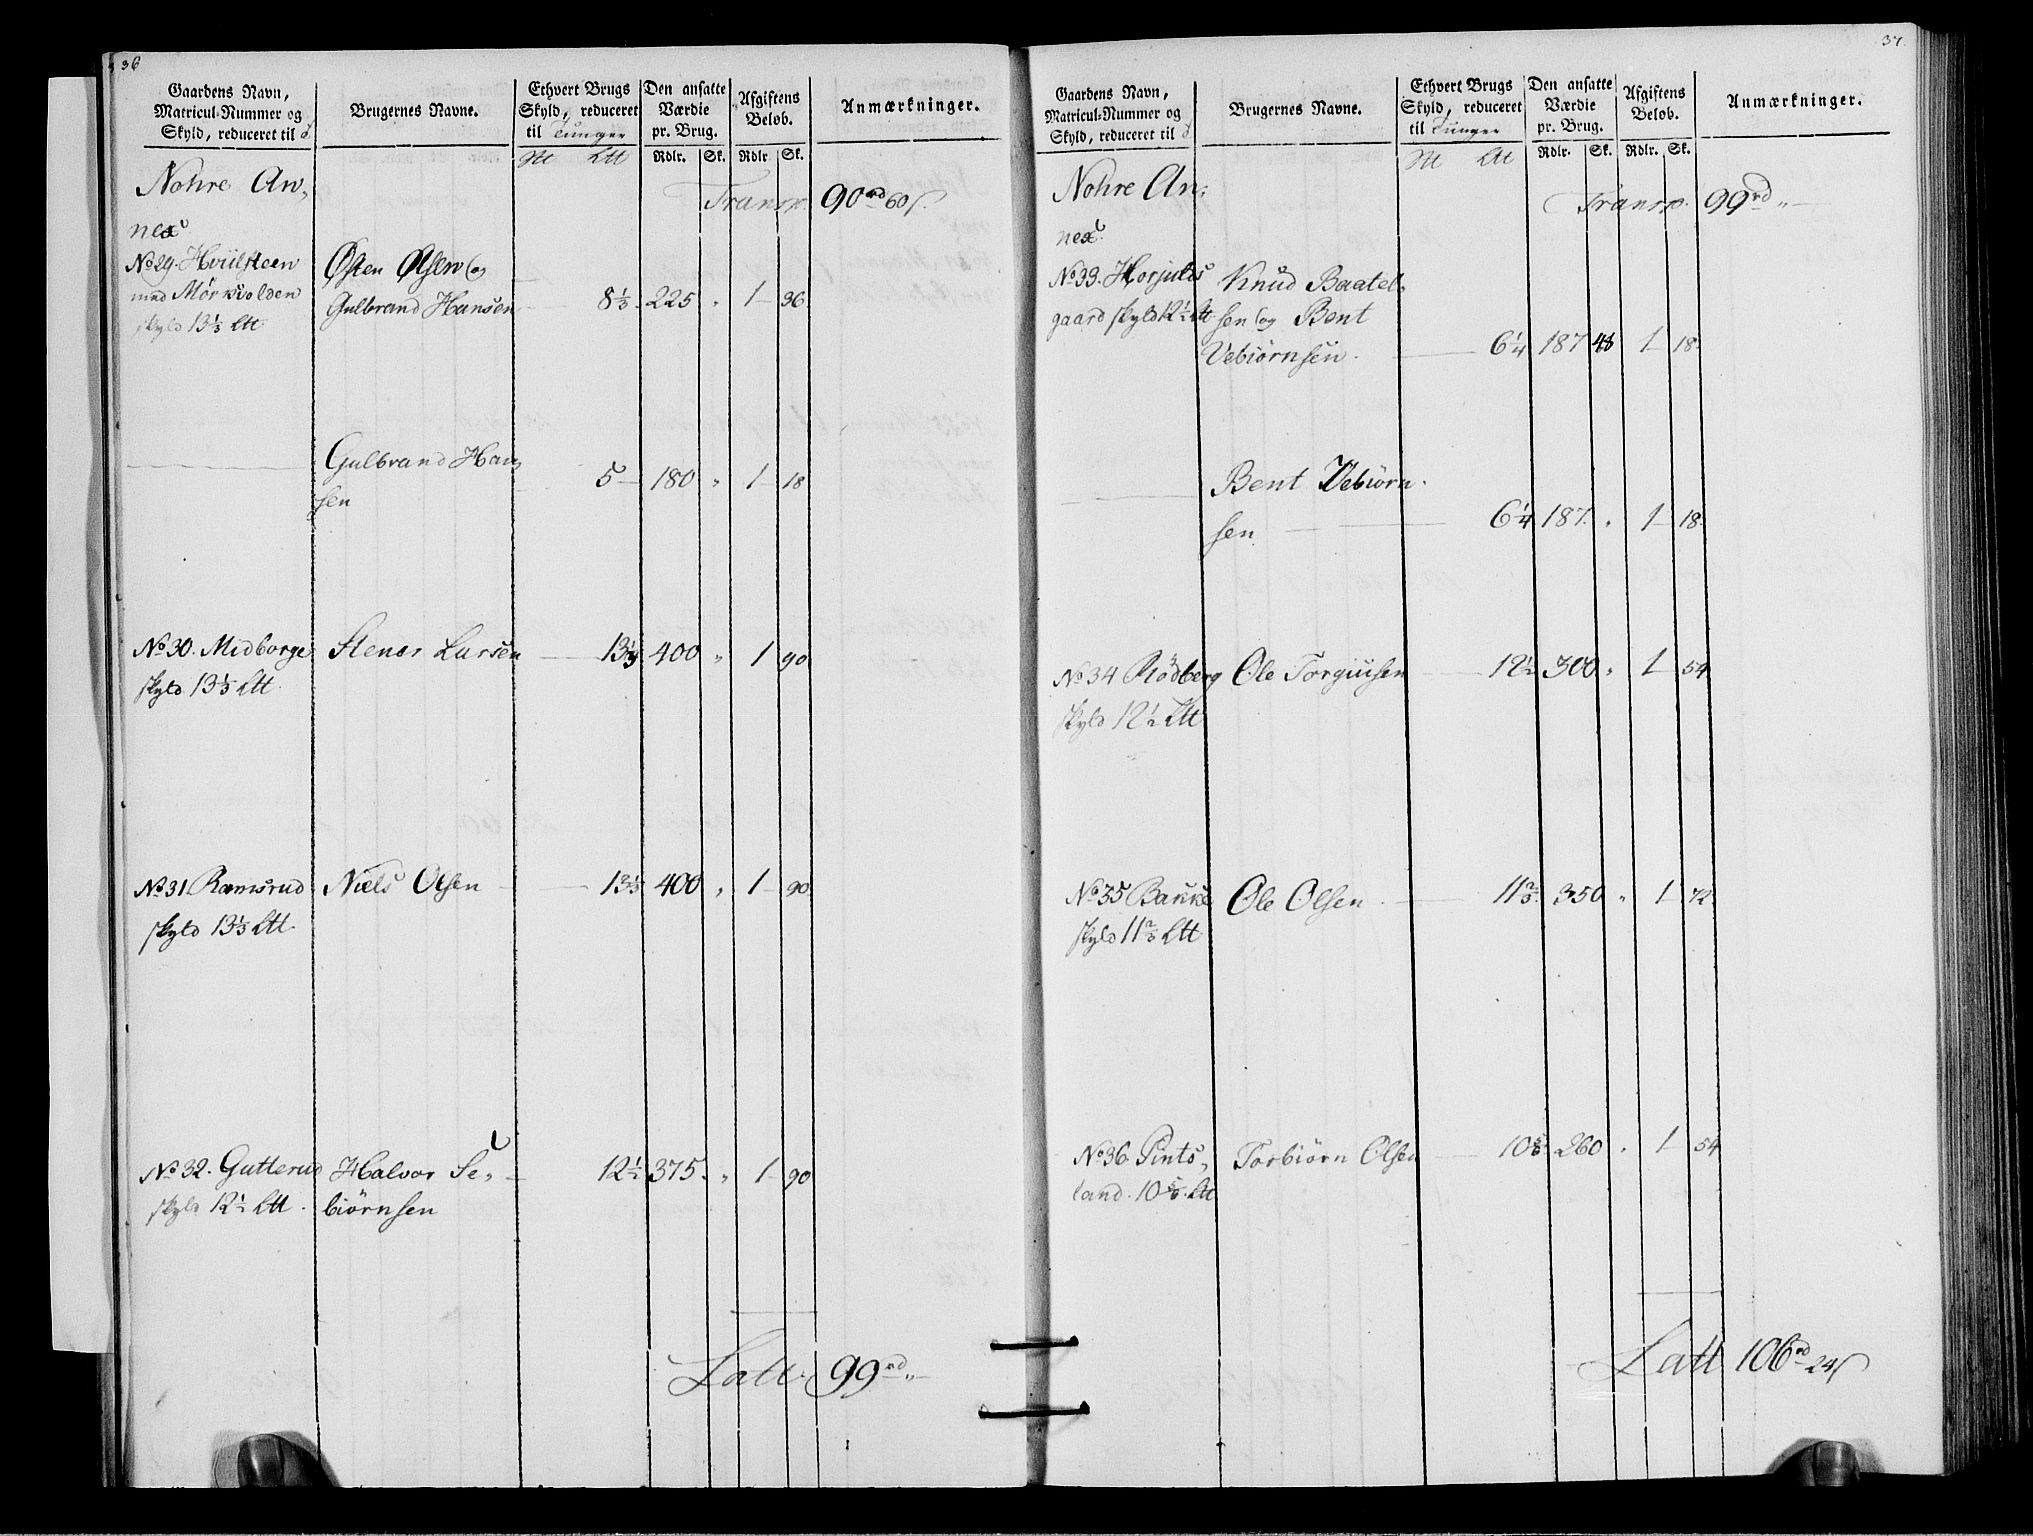 36
Gaardens Navn,
Matricul-Nummer og
Skyld, reduceret til
Brugernes Navne.
Ethvert Brugs
Skyld, reduceret
til Tunger
Den ansatte
Værdie
pr. Brug.
Afgiftens
Beløb.
Anmærkninger.
Rdlr. Sk. Rdlr Sk.
Nohre An-
nex
Transp. 90 rd 60 s.
No 29. Hviilsteen
med Mørkvolden
skyld 13⅓ Ltt
Østen Olsen og
Gulbrand Hansen 8⅓ 225 „ 1 36
Gulbrand Han-
sen
5 180 „ 1 18
No 30. Midborge
skyld 13⅓ Ltt.
Stener Larsen 13⅓ 400 „ 1 90
No 31 Ramsrud
skyld 13⅓ Ltt.
Niels Olsen 13⅓ 400 „ 1 90
No 32. Gutterud
skyld 12½ Ltt.
Halvor Se-
biørnsen
12½ 375 „ 1 90
Latt. 99 rd „
37.
Gaardens Navn,
Matricul-Nummer og
Skyld, reduceret til
Brugernes Navne.
Ethvert Brugs
Skyld, reduceret
til Tunger
Den ansatte
Værdie
pr. Brug.
Afgiftens
Beløb.
Anmærkninger.
Rdlr. Sk. Rdlr. Sk.
Nohre An-
nex.
Transp. 99 rd „
No 33. Horjulds
gaard skyld 12½ Ltt
Knud Baatel-
sen og Bent
Vebiørnsen. 6¼ 187 48 1 18.
Bent Vebiørn-
sen
6¼ 187. „ 1 18.
No 34 Rødberg
skyld 12½ Ltt
Ole Torgiusen 12½ 300 „ 1 54
No 35 Bakke
skyld 11⅔ Ltt
Ole Olsen 11⅔ 350 „ 1 72.
No 36 Pints-
land. 10⅚ Ltt
Torbiørn Olsen 10⅚ 260 „ 1 54
Latt 106 rd 24 s